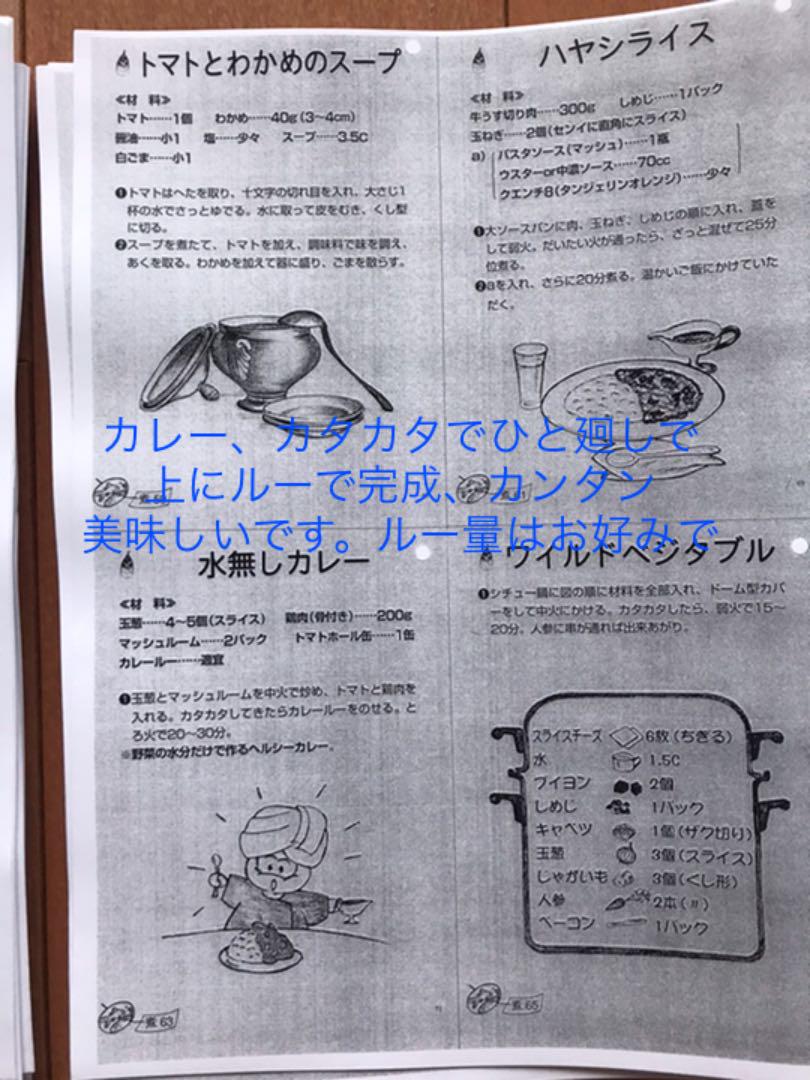 トマトとわかめのスープ
≪材 料≫
トマト……1個 わかめ……40g(3〜4cm)
醤油……小1 塩……少々 スープ……3.5C
白ごま……小1
❶トマトはへたを取り、十文字の切れ目を入れ、大さじ1
杯の水でさっとゆでる。水に取って皮をむき、くし型
に切る。
❷スープを煮たて、トマトを加え、調味料で味を調え、
あくを取る。わかめを加えて器に盛り、ごまを散らす。
ハヤシライス
≪材 料≫
牛うす切り肉……300g しめじ……1パック
玉ねぎ……2個(センイに直角にスライス)
a) パスタソース(マッシュ)……1瓶
ウスターor中濃ソース……70cc
クエンチ8(タンジェリンオレンジ)……少々
❶大ソースパンに肉、玉ねぎ、しめじの順に入れ、蓋を
して弱火。だいたい火が通ったら、ざっと混ぜて25分
位煮る。
❷aを入れ、さらに20分煮る。温かいご飯にかけていた
だく。
カレー、カタカタでひと廻しで
上にルーで完成、カンタン
美味しいです。ルー量はお好みで
水無しカレー
≪材 料≫
玉葱……4〜5個(スライス) 鶏肉(骨付き)……200g
マッシュルーム……2パック トマトホール缶……1缶
カレールー……適宜
❶玉葱とマッシュルームを中火で炒め、トマトと鶏肉を
入れる。カタカタしてきたらカレールーをのせる。と
ろ火で20〜30分。
※野菜の水分だけで作るヘルシーカレー。
煮 63
ワイルドベジタブル
❶シチュー鍋に図の順に材料を全部入れ、ドーム型カバ
ーをして中火にかける。カタカタしたら、弱火で15〜
20分。人参に串が通れば出来あがり。
スライスチーズ 6枚(ちぎる)
水 1.5C
ブイヨン 2個
しめじ 1パック
キャベツ 1個(ザク切り)
玉葱 3個(スライス)
じゃがいも 3個(くし形)
人参 2本(〃)
ベーコン 1パック
煮 65